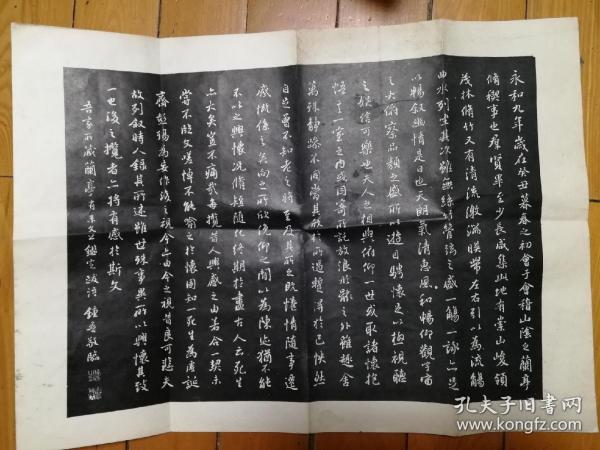 永和九年歲在癸丑暮春之初會于會稽山陰之蘭亭
脩稧事也羣賢畢至少長咸集此地有崇山峻領
茂林脩竹又有清流激湍暎帶左右引以為流觴
曲水列坐其次雖無絲竹管弦之盛一觴一詠亦足
以暢叙幽情是日也天朗氣清惠風和暢仰觀宇宙
之大俯察品類之盛所以遊目騁懷足以極視聽
之娛信可樂也夫人之相與俯仰一世或取諸懷抱
悟言一室之内或因寄所託放浪形骸之外雖趣舍
萬殊静躁不同當其欣於所遇蹔得於己怏然
自足曾不知老之將至及其所之既惓情隨事遷
感慨係之矣向之所欣俛仰之間以為陳迹猶不能
不以之興懷況脩短隨化終期於盡古人云死生
亦大矣豈不痛哉每攬昔人興感之由若合一契未
嘗不臨文嗟悼不能喻之於懷固知一死生為虚誕
齊彭殤為妄作後之視今亦由今之視昔良可悲夫
故列叙時人録其所述雖世殊事異所以興懷其致
一也後之攬者亦將有感於斯文
吾家所藏蘭亭古本 鑑定 敬臨
孔夫子旧书网
www.kongfz.com